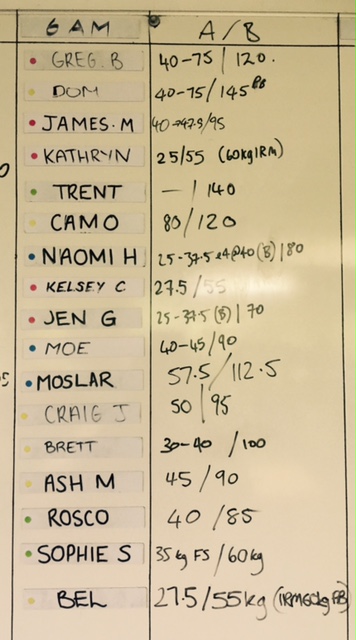 6 AM A/B
GREG.B 40-75 / 120.
DOM 40-75/145 PB
JAMES.M 40→47.5/95
KATHRYN 25/55 (60kg 1RM)
TRENT — / 140
CAMO 80/120
NAOMI H 25-37.5 e4@40 (B) | 80
KELSEY C 27.5/55
JEN G 25-37.5 (B) | 70
MOE 40-45/90
MOSLAR 57.5/112.5
CRAIG J 50/95
BRETT 30-40 /100
ASH M 45/90
ROSCO 40/85
SOPHIE S 35kg FS/60kg
BEL 27.5/55kg (1RM60kg PB)